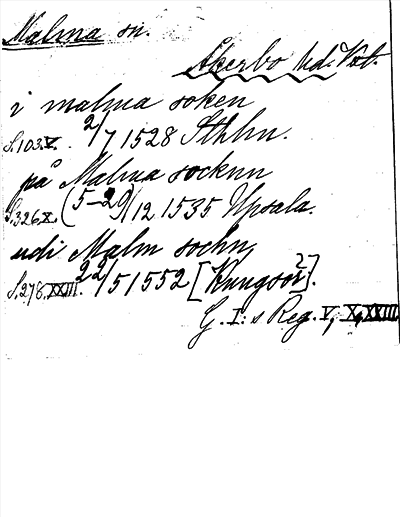 Malma sn.
Åkerbo hd. Vstl.
i malma soken
S. 103. V. 2/7 1528 Sthlm.
på Malma socknn
S. 326. X. (5-29)/12 1535 Upsala.
udi Malm sochn,
S. 278. XXIII. 22/5 1552 [Kungsör?].
G. I:s Reg. V, X, XXIII.